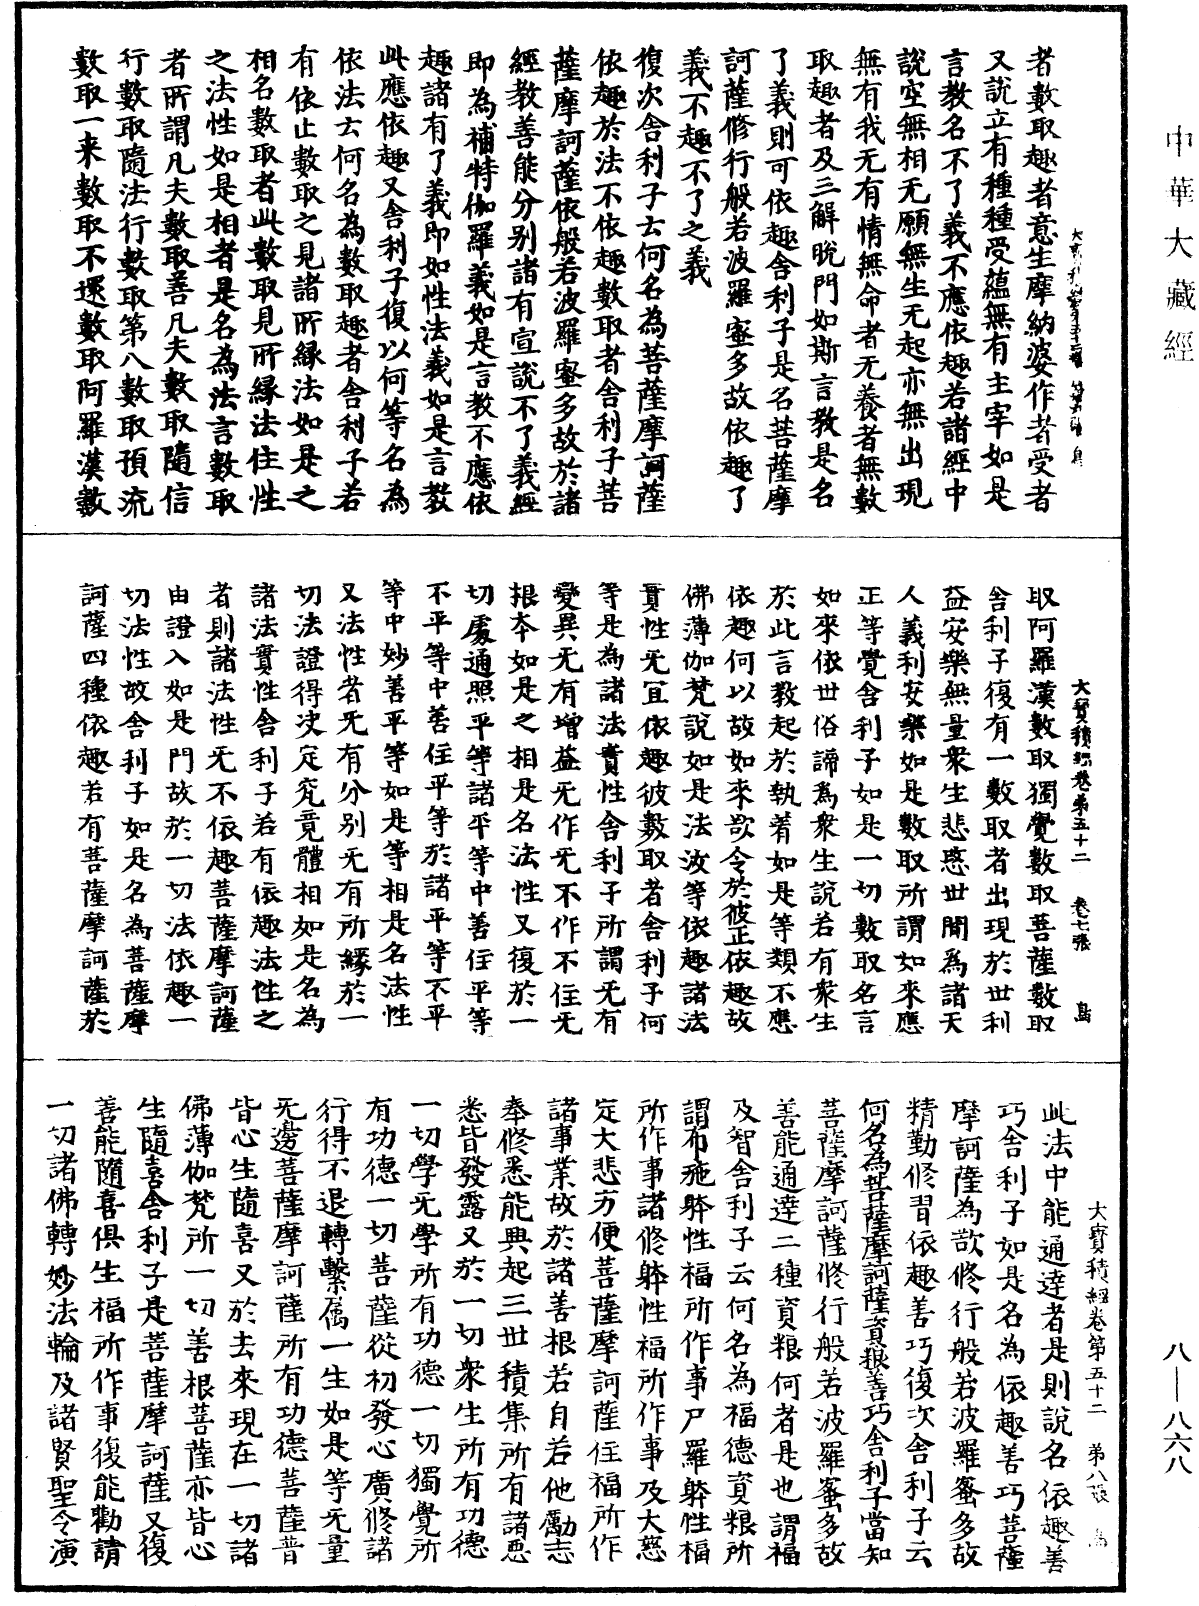 中華大藏經
者數取趣者意生摩納婆作者受者
又說立有種種受蘊無有主宰如是
言教名不了義不應依趣若諸經中
說空無相无願無生无起亦無出現
無有我无有情無命者无養者無數
取趣者及三解脫門如斯言教是名
了義則可依趣舍利子是名菩薩摩
訶薩修行般若波羅蜜多故依趣了
義不趣不了之義
復次舍利子云何名為菩薩摩訶薩
依趣於法不依趣數取者舍利子菩
薩摩訶薩依般若波羅蜜多故於諸
經教善能分別諸有宣說不了義經
即為補特伽羅義如是言教不應依
趣諸有了義即如性法義如是言教
此應依趣又舍利子復以何等名為
依法云何名為數取趣者舍利子若
有依止數取之見諸所緣法如是之
相名數取者此數取見所緣法住性
之法性如是相者是名為法言數取
者所謂凡夫數取善凡夫數取隨信
行數取隨法行數取第八數取預流
數取一来數取不還數取阿羅漢數
大寶積經卷第五十二 卷七張
取阿羅漢數取獨覺數取菩薩數取
舍利子復有一數取者出現於世利
益安樂無量衆生悲愍世間為諸天
人義利安樂如是數取所謂如來應
正等覺舍利子如是一切數取名言
如來依世俗諦為衆生說若有衆生
於此言教起於執著如是等類不應
依趣何以故如來欲令於彼正依趣故
佛薄伽梵說如是法汝等依趣諸法
實性无宜依趣彼數取者舍利子何
等是為諸法實性舍利子所謂无有
變異无有增益无作无不作不住无
根本如是之相是名法性又復於一
切處通照平等諸平等中善住平等
不平等中善住平等於諸平等不平
等中妙善平等如是等相是名法性
又法性者无有分別无有所緣於一
切法證得决定究竟體相如是名為
諸法實性舍利子若有依趣法性之
者則諸法性无不依趣菩薩摩訶薩
由證入如是門故於一切法依趣一
切法性故舍利子如是名為菩薩摩
訶薩四種依趣若有菩薩摩訶薩於
大寶積經卷第五十二 第八張
此法中能通達者是則說名依趣善
巧舍利子如是名為依趣善巧菩薩
摩訶薩為欲修行般若波羅蜜多故
精勤修習依趣善巧復次舍利子云
何名為菩薩摩訶薩資糧善巧舍利子當知
菩薩摩訶薩修行般若波羅蜜多故
善能通達二種資粮何者是也謂福
及智舍利子云何名為福德資粮所
謂布施躰性福所作事尸羅躰性福
所作事諸修躰性福所作事及大慈
定大悲方便菩薩摩訶薩住福所作
諸事業故於諸善根若自若他勵志
奉修悉能興起三世積集所有諸惡
悉皆發露又於一切衆生所有功德
一切學无學所有功德一切獨覺所
有功德一切菩薩從初發心廣修諸
行得不退轉繫属一生如是等无量
无邊菩薩摩訶薩所有功德菩薩普
皆心生隨喜又於去來現在一切諸
佛薄伽梵所一切善根菩薩亦皆心
生隨喜舍利子是菩薩摩訶薩又復
善能隨喜俱生福所作事復能勸請
一切諸佛轉妙法輪及諸賢聖令演
八—八六八